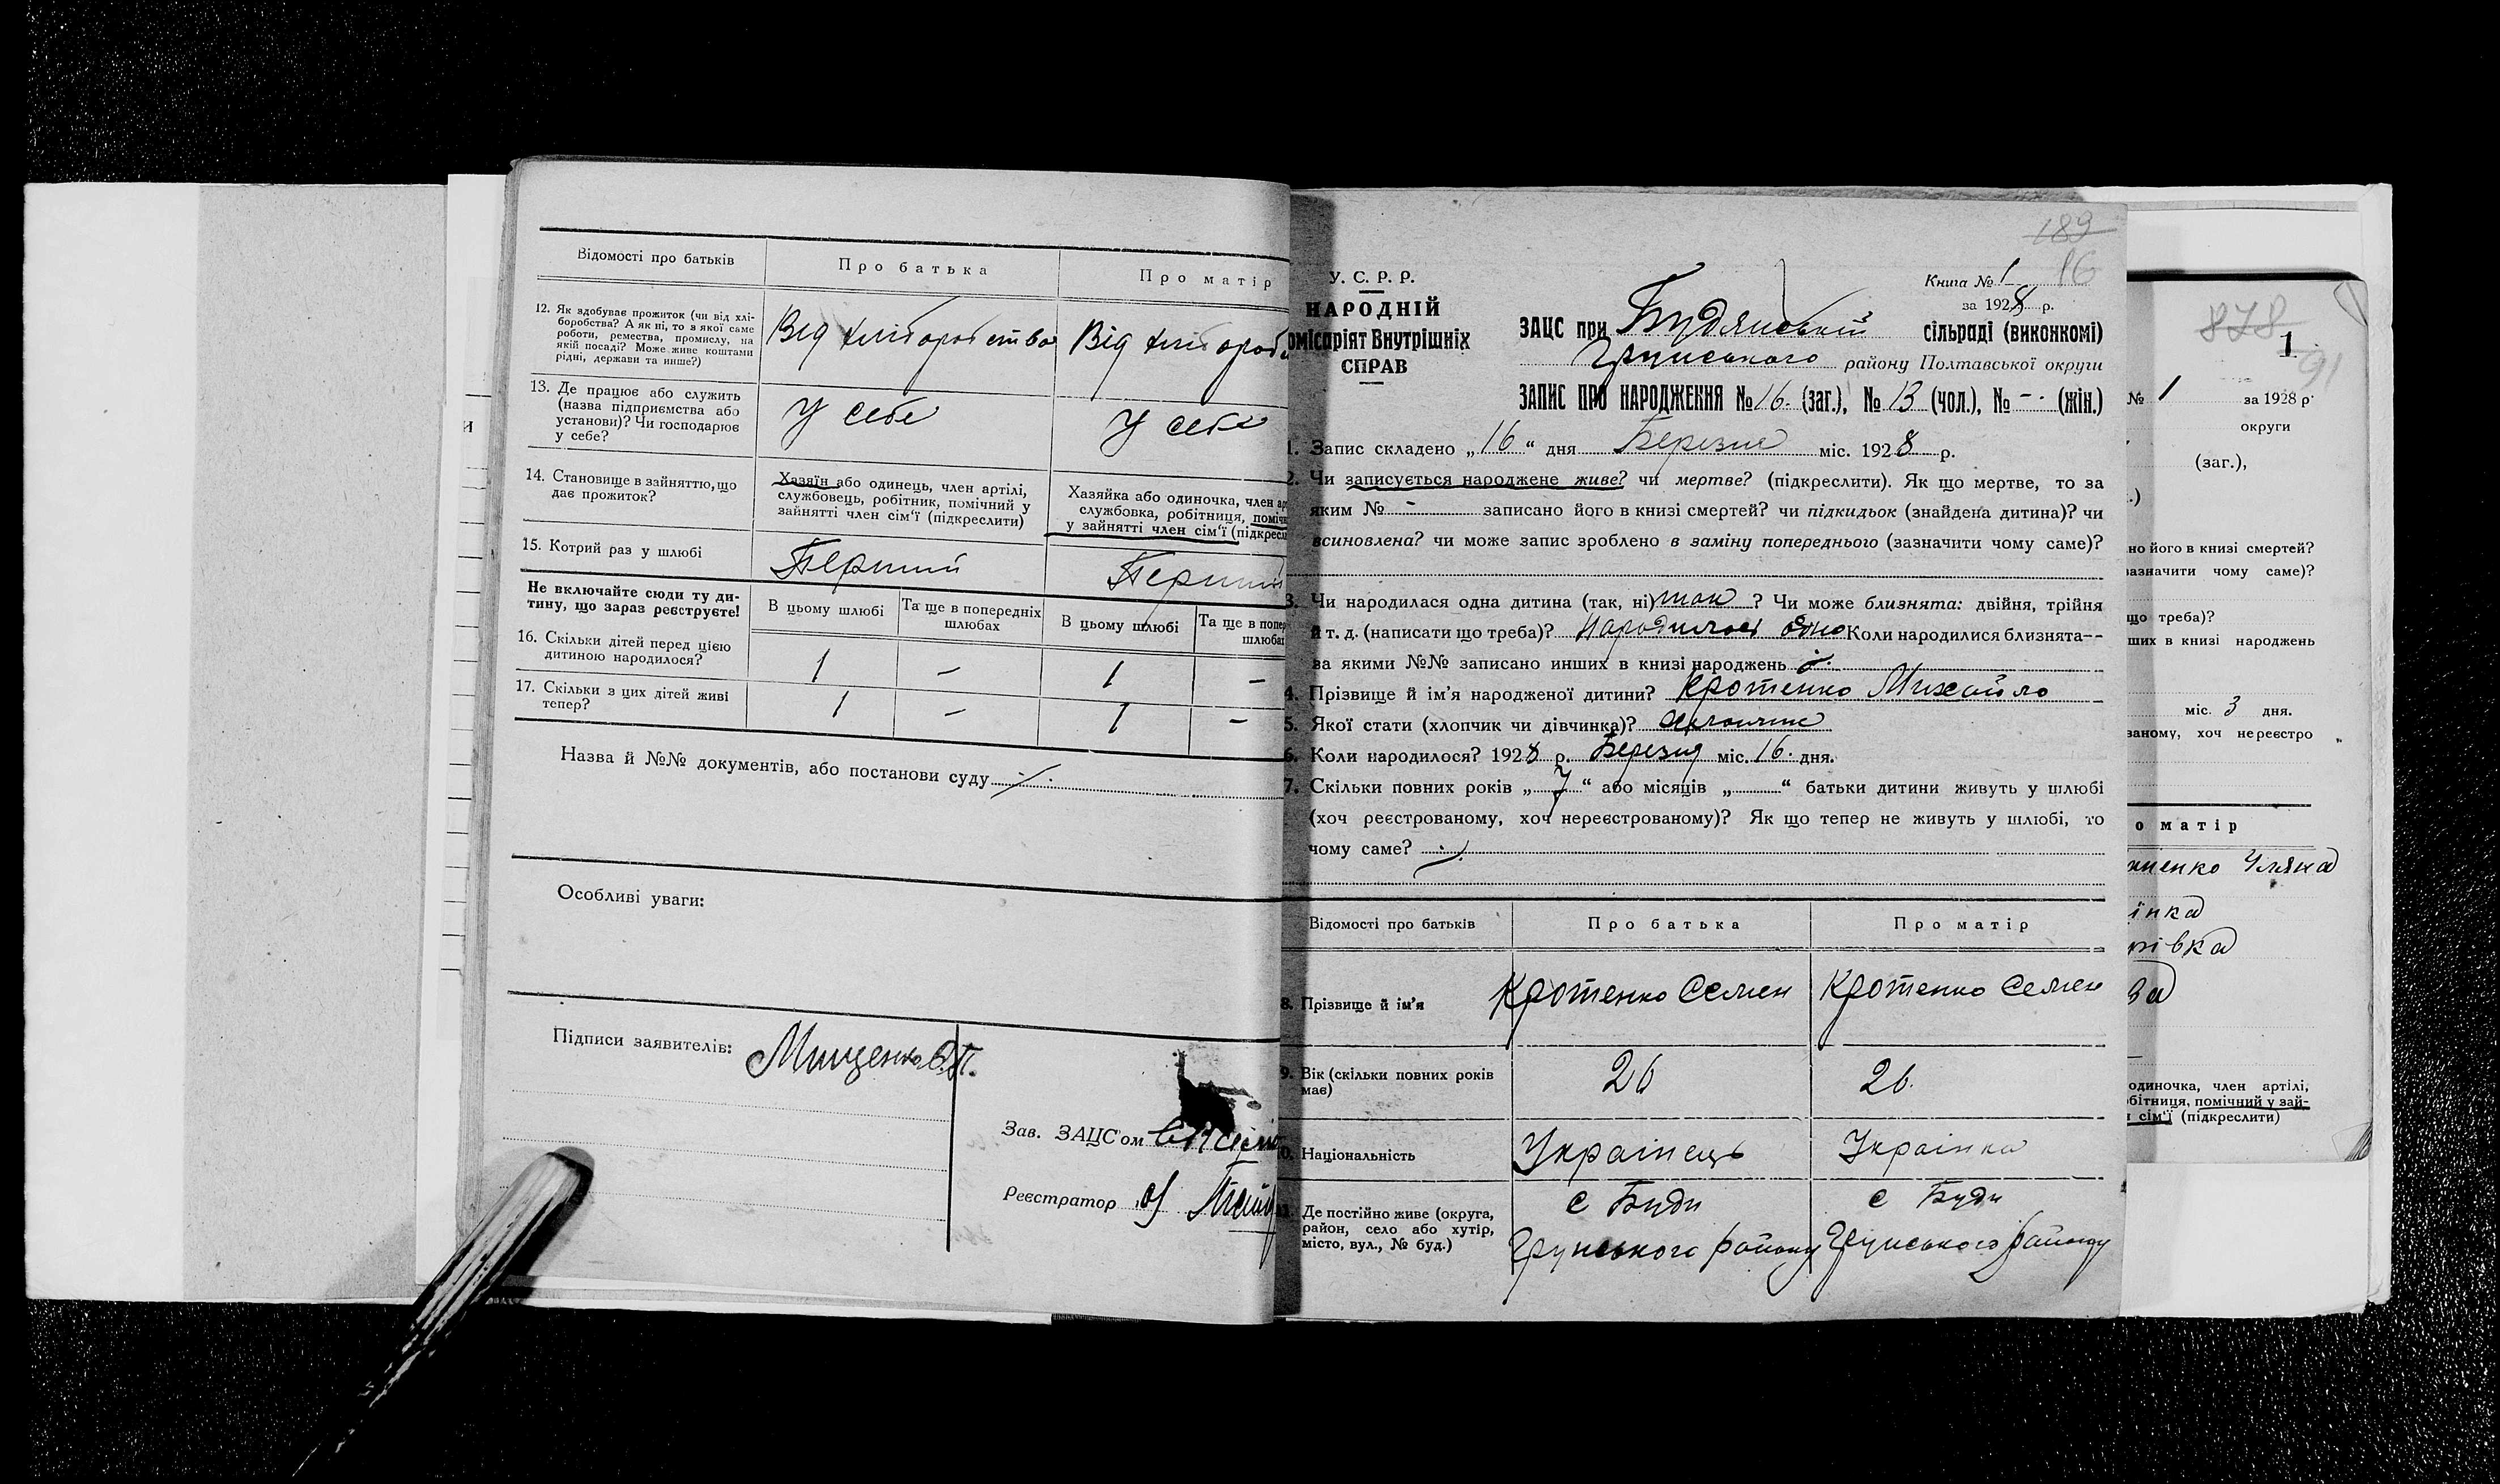 Відомості про батьків
Про батька
Про матір
12. Як здобуває прожиток (чи від хлі-
боробства? А як ні, то з якої саме
роботи, ремества, промислу, на
якій посаді? Може живе коштами
рідні, держави та инше?)
Від хліборобства
Від хлібороб
13. Де працює або служить
(назва підприємства або
установи)? Чи господарює
у себе?
У себе
У себе
14. Становище в зайняттю, що
дає прожиток?
Хазяїн або одинець, член артілі,
службовець, робітник, помічний у
зайнятті член сім'ї (підкреслити)
Хазяйка або одиночка, член ар
службовка, робітниця, поміч
у зайнятті член сім'ї (підкресл
15. Котрий раз у шлюбі
Перший
Перший
Не включайте сюди ту ди-
тину, що зараз реєструєте!
В цьому шлюбі
Та ще в попередніх
шлюбах
В цьому шлюбі
Та ще в попер
шлюбах
16. Скільки дітей перед цією
дитиною народилося?
1 – 1 –
17. Скільки з цих дітей живі
тепер?
1 – 1 –
Назва й №№ документів, або постанови суду
Особливі уваги:
Підписи заявителів: Мищенко
Зав. ЗАЦС'ом
Реєстратор
189
16
У. С. Р. Р.
НАРОДНІЙ
омісаріят Внутрішніх
СПРАВ
Книга № 1
за 1928 р.
ЗАЦС при Будянській сільраді (виконкомі)
Грунського району Полтавської округи
ЗАПИС ПРО НАРОДЖЕННЯ № 16. (заг.), № 13 (чол.), № - - (жін.)
1. Запис складено „16“ дня Березня міс. 1928 р.
2. Чи записується народжене живе? чи мертве? (підкреслити). Як що мертве, то за
яким № - записано його в книзі смертей? чи підкидьок (знайдена дитина)? чи
всиновлена? чи може запис зроблено в заміну попереднього (зазначити чому саме)?
3. Чи народилася одна дитина (так, ні) так ? Чи може близнята: двійня, трійня
й т. д. (написати що треба)? Народилось одно Коли народилися близнята--
за якими №№ записано инших в книзі народжень
4. Прізвище й ім'я народженої дитини? Кротенко Михайло
5. Якої стати (хлопчик чи дівчинка)? Хлопчик
6. Коли народилося? 1928 р. Березня міс. 16. дня.
7. Скільки повних років „7“ або місяців „ “ батьки дитини живуть у шлюбі
(хоч реєстрованому, хоч нереєстрованому)? Як що тепер не живуть у шлюбі, то
чому саме?
Відомості про батьків
Про батька
Про матір
8. Прізвище й ім'я
Кротенко Семен
Кротенко Семен
9. Вік (скільки повних років
має)
26
26.
0. Національність
Українець
Українка
Де постійно живе (округа,
район, село або хутір,
місто, вул., № буд.)
с Буди
Грунського району
с Буди
Грунського району
878
1
91
№ 1 за 1928 р.
округи
(заг.),
.)
но його в книзі смертей?
зазначити чому саме)?
що треба)?
ших в книзі народжень
міс. 3 дня.
ваному, хоч нереєстро
о матір
ненко Уляна
їнка
рівка
одиночка, член артілі,
бітниця, помічний у зай-
н сім'ї (підкреслити)